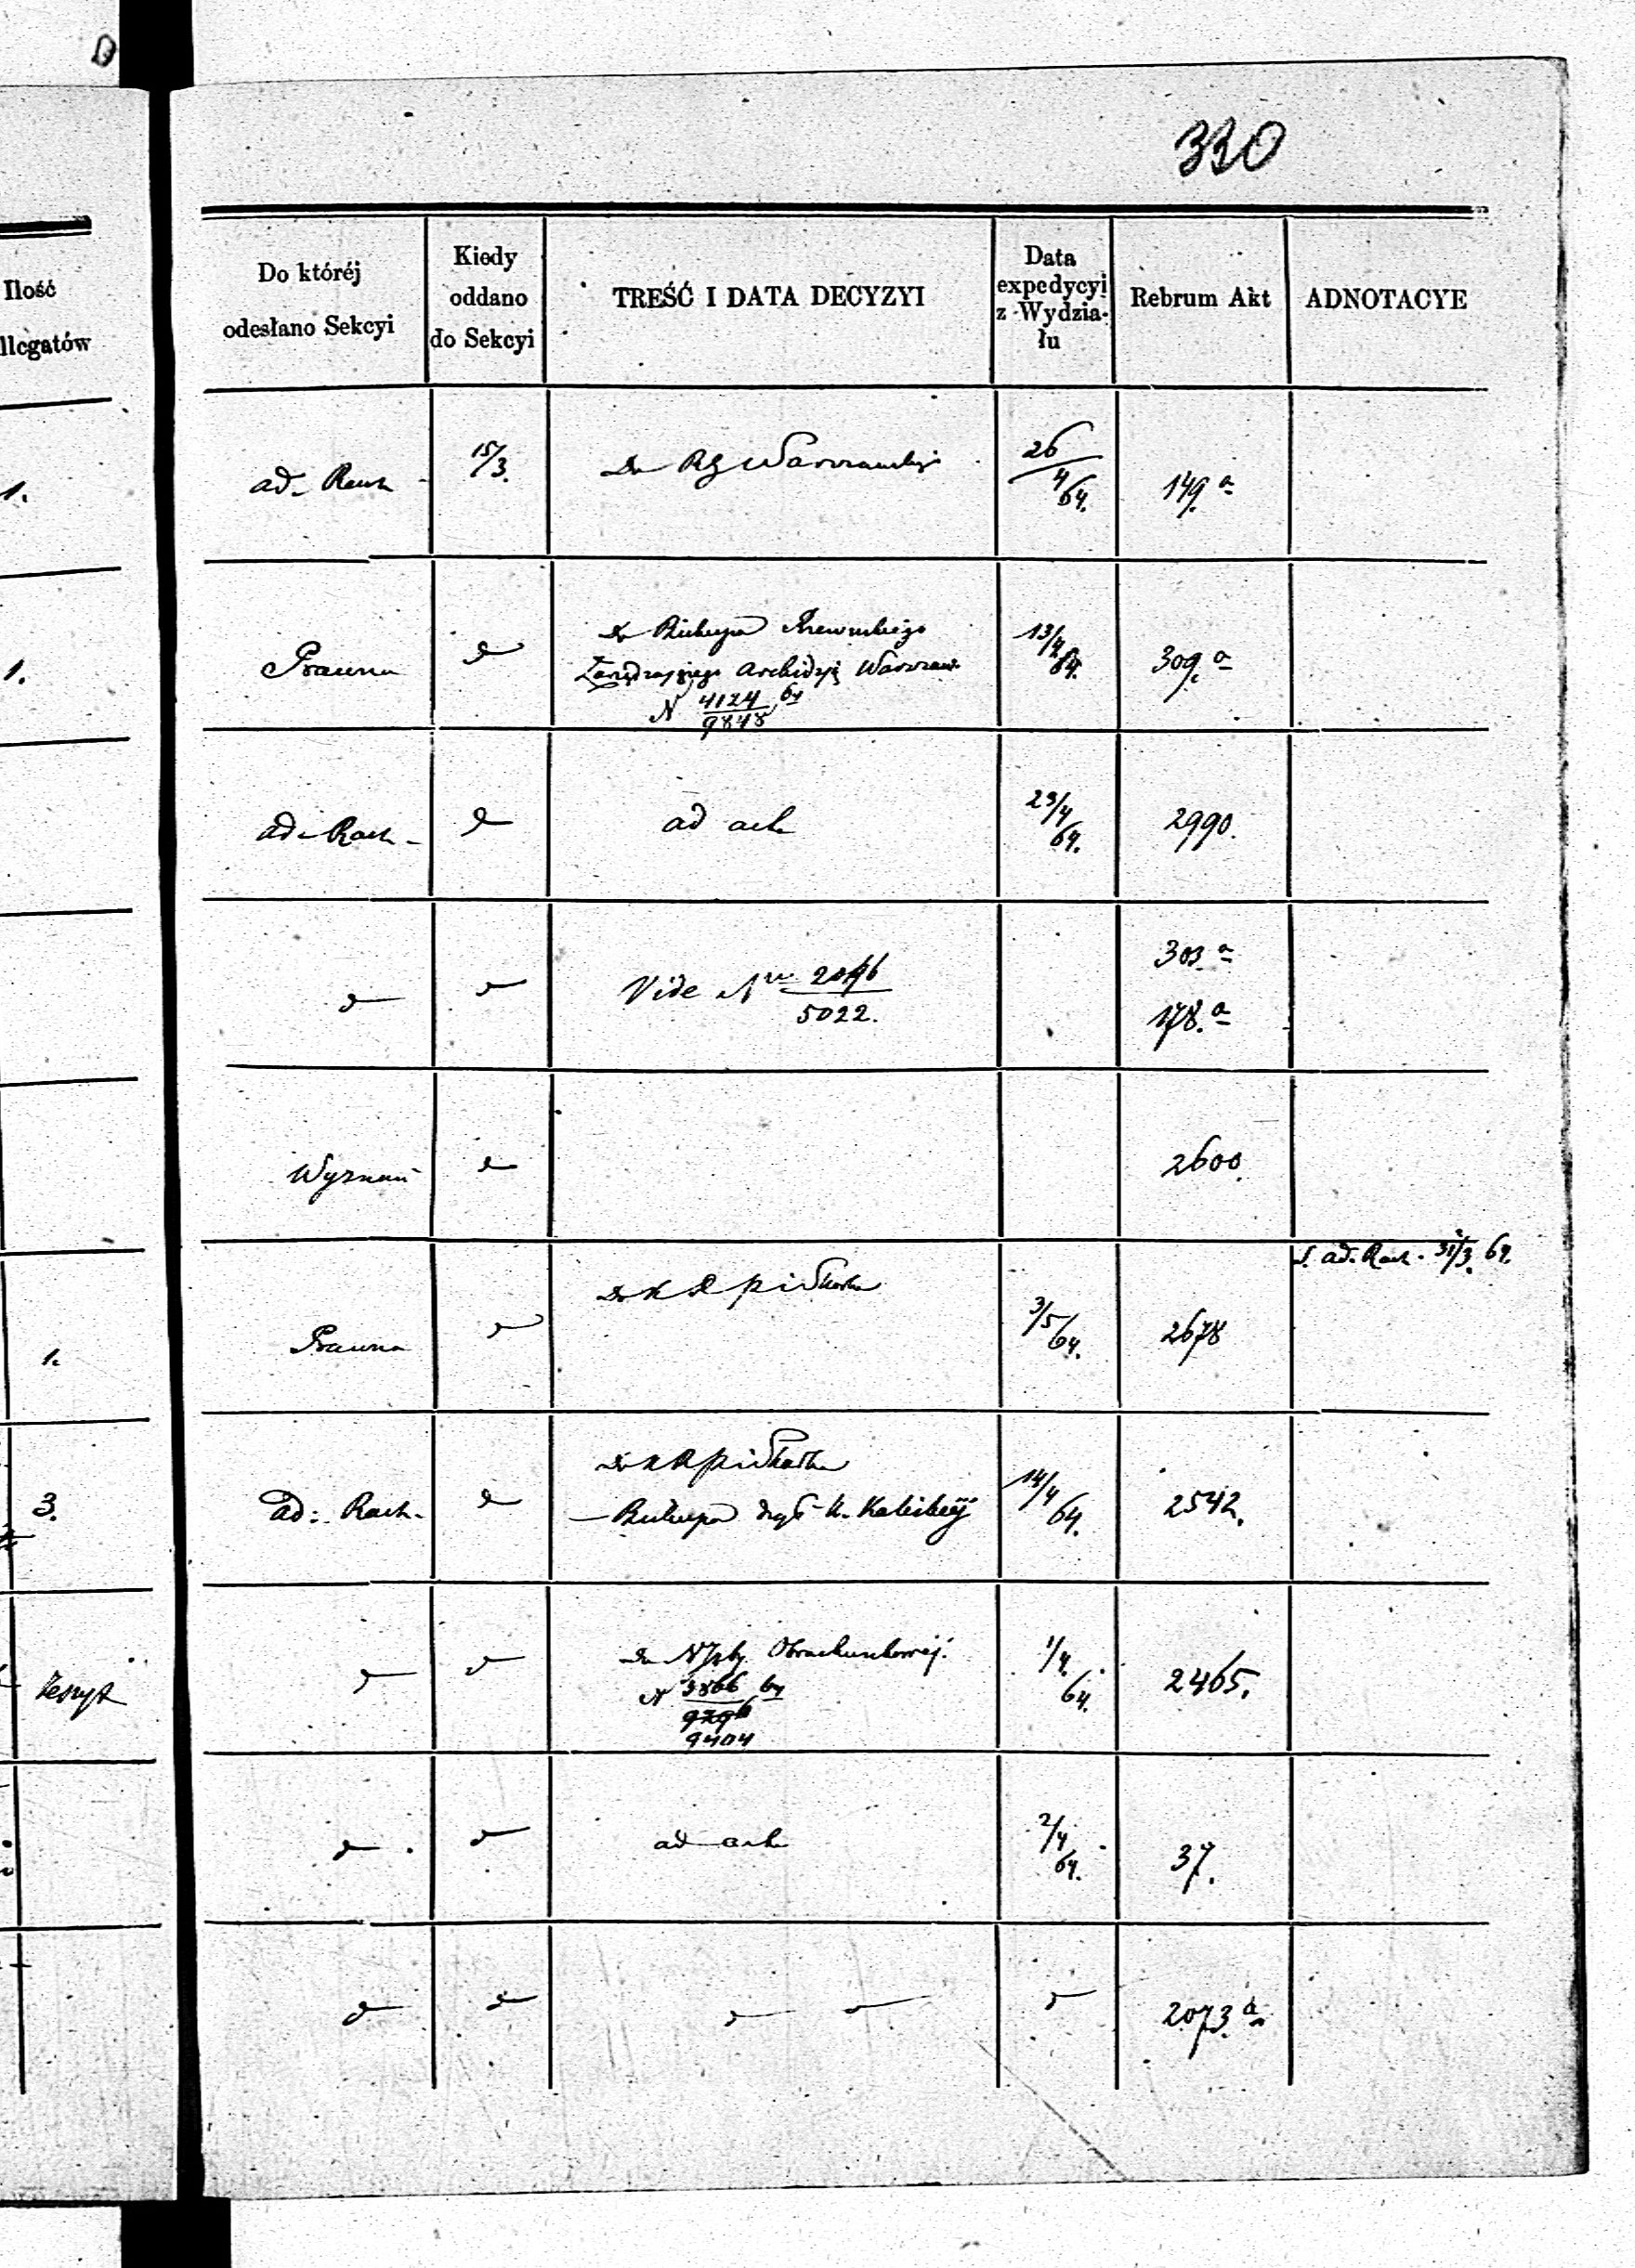 330
Ilość
llegatów
Do któréj
odesłano Sekcyi
Kiedy
oddano
do Sekcyi
TREŚĆ I DATA DECYZYI
Data
expedycyi
z Wydzia-
łu
Rebrum Akt
ADNOTACYE
1.
ad. Rach
15/3.
Do RG Warszawskiego
26/4/64.
149. a
1.
Prawna
Do Biskupa Rzewuskiego
Zarządzającego Archidyę Warszaw
N 4124 64
9848
13/4/64.
309. a
ad. Rach -
ad acta
23/4/64.
2990.
Vide Nr 2046
5022.
303. a
178. a
Wyznań
2600.
ad. Rach. 31/3. 64.
1.
Prawna
Do K R P i Skarbu
3/5/64.
2678
3.
ad: Rach.
Do K R P i Skarbu
— Biskupa dyec K. Kaliskiej
14/4/64.
2542.
zeszyt
Do N Izby Obrachunkowej.
N 3866 64
9404
1/4/64.
2465.
ad acta
2/4/64.
37.
2073. a